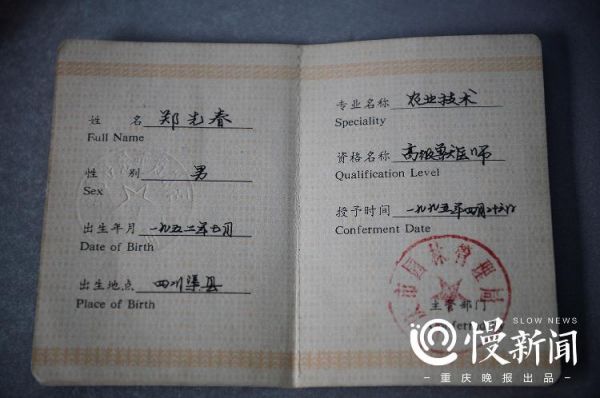 姓 名 郑光春
Full Name
性 别 男
Sex
出生年月 一九五二年七月
Date of Birth
出生地点 四川渠县
Place of Birth
专业名称 农业技术
Speciality
资格名称 高级兽医师
Qualification Level
授予时间 一九九五年四月二十六日
Conferment Date
市园林管理局
主管部门
SLOW NEWS
慢新闻
重庆晚报出品